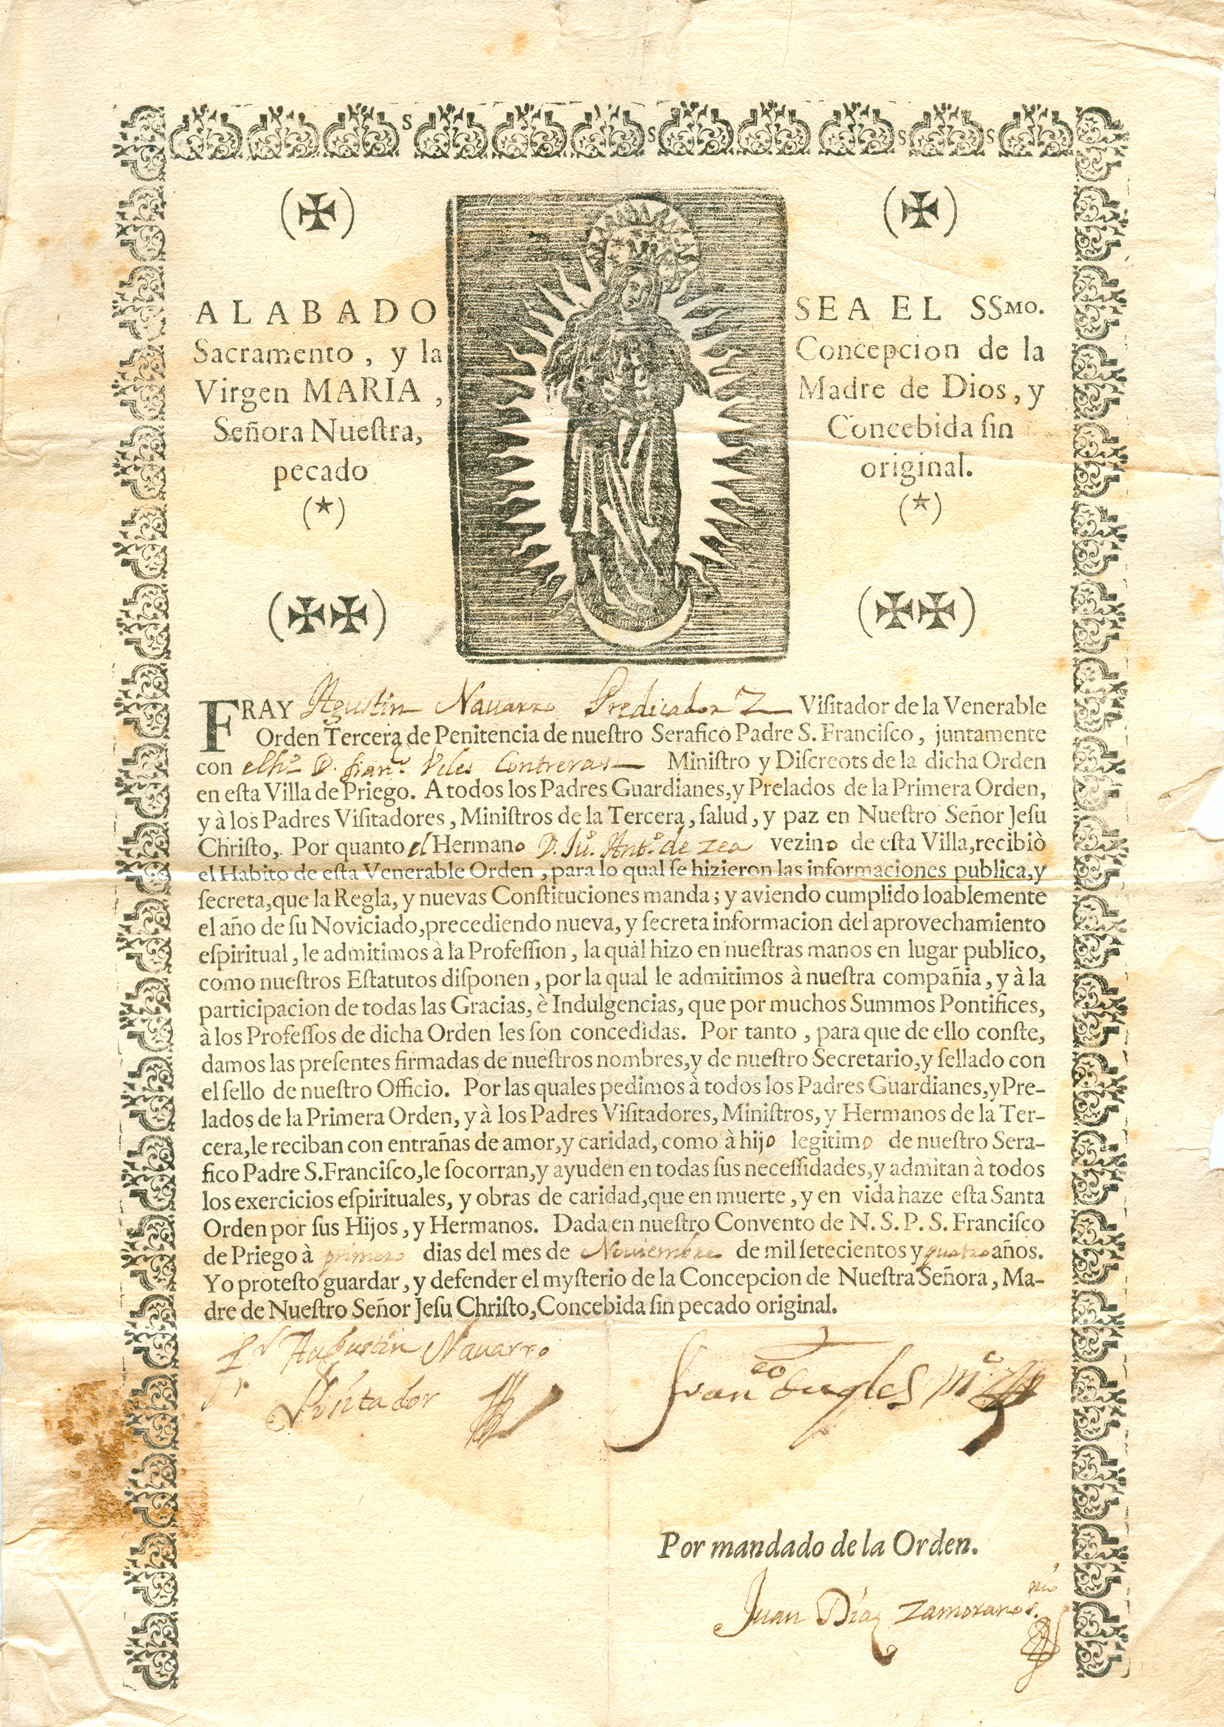 ALABADO SEA EL SSMO.
Sacramento, y la Concepcion de la
Virgen MARIA, Madre de Dios, y
Señora Nueſtra, Concebida ſin
pecado original.
FRAY Agustin Navarro Predicador Viſitador de la Venerable
Orden Tercera de Penitencia de nueſtro Serafico Padre S. Franciſco, juntamente
con el hº D. franº Veles Contreras Miniſtro y Diſcreots de la dicha Orden
en eſta Villa de Priego. A todos los Padres Guardianes, y Prelados de la Primera Orden,
y à los Padres Viſitadores, Miniſtros de la Tercera, ſalud, y paz en Nueſtro Señor Jeſu
Chriſto,. Por quanto el Hermano D. Juº Antº de zea vezino de eſta Villa, recibiò
el Habito de eſta Venerable Orden, para lo qual ſe hizieron las informaciones publica, y
ſecreta, que la Regla, y nuevas Conſtituciones manda; y aviendo cumplido loablemente
el año de ſu Noviciado, precediendo nueva, y ſecreta informacion del aprovechamiento
eſpiritual, le admitimos à la Profeſſion, la qual hizo en nueſtras manos en lugar publico,
como nueſtros Eſtatutos diſponen, por la qual le admitimos à nueſtra compañia, y à la
participacion de todas las Gracias, è Indulgencias, que por muchos Summos Pontifices,
à los Profeſſos de dicha Orden les ſon concedidas. Por tanto, para que de ello conſte,
damos las preſentes firmadas de nueſtros nombres, y de nueſtro Secretario, y ſellado con
el ſello de nueſtro Officio. Por las quales pedimos à todos los Padres Guardianes, y Pre-
lados de la Primera Orden, y à los Padres Viſitadores, Miniſtros, y Hermanos de la Ter-
cera, le reciban con entrañas de amor, y caridad, como à hijo legitimo de nueſtro Sera-
fico Padre S. Franciſco, le ſocorran, y ayuden en todas ſus neceſſidades, y admitan à todos
los exercicios eſpirituales, y obras de caridad, que en muerte, y en vida haze eſta Santa
Orden por ſus Hijos, y Hermanos. Dada en nueſtro Convento de N. S. P. S. Franciſco
de Priego à primero dias del mes de Noviembre de mil ſetecientos y quatro años.
Yo proteſto guardar, y defender el myſterio de la Concepcion de Nueſtra Señora, Ma-
dre de Nueſtro Señor Jeſu Chriſto, Concebida ſin pecado original.
fr Augustin Navarro
Visitador
Por mandado de la Orden.
Juan Díaz Zamorano